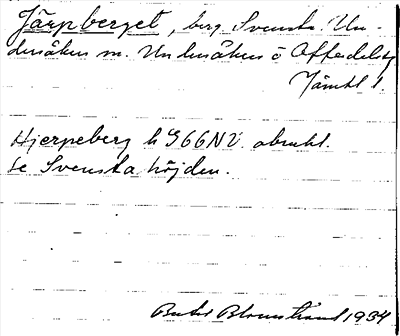 Järpberget, berg Svensta. Un-
dersåkers sn. Undersåkers o Offerdals tg
Jämtl l.
Hjerpeberg h G66NV obrukl.
Se Svensta höjden.
Bertil Blomstrand 1934